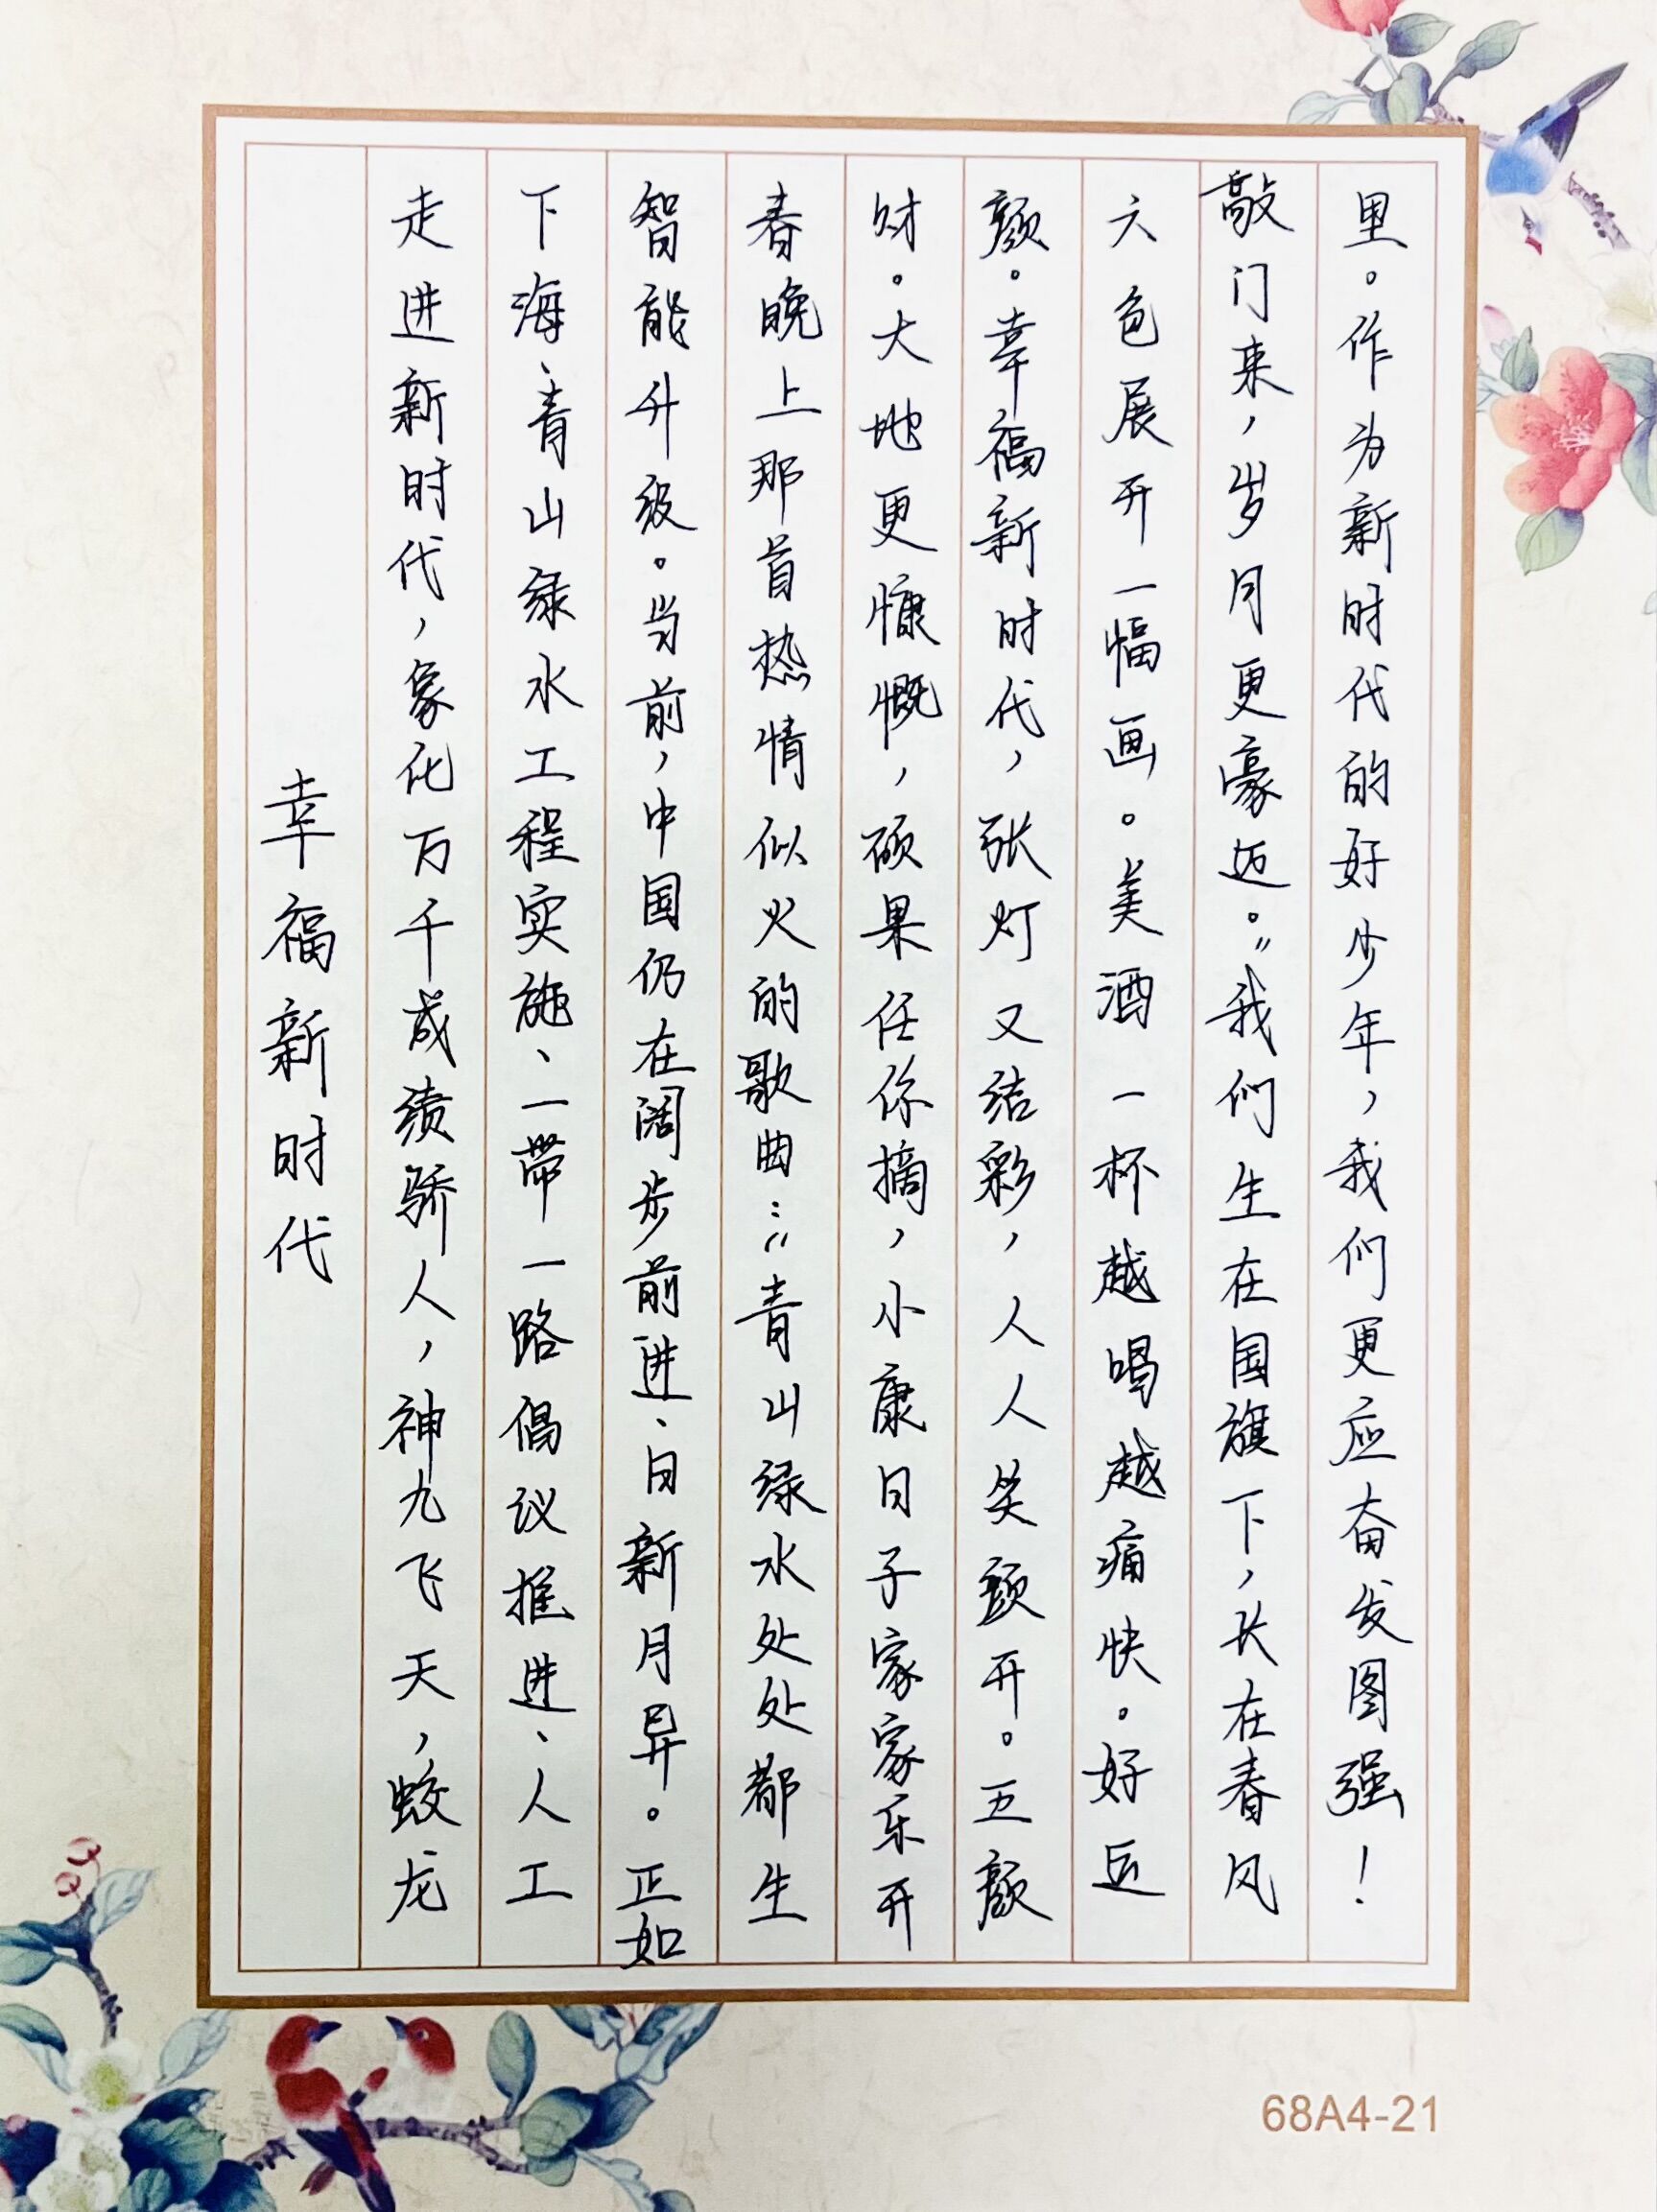 幸福新时代
走进新时代，象化万千成绩骄人，神九飞天，蛟龙
下海、青山绿水工程实施、一带一路倡议推进、人工
智能升级。当前，中国仍在阔步前进、日新月异。正如
春晚上那首热情似火的歌曲：“青山绿水处处都生
财。大地更慷慨，硕果任你摘，小康日子家家乐开
颜。幸福新时代，张灯又结彩，人人笑颜开。五颜
六色展开一幅画。美酒一杯越喝越痛快。好运
敲门来，岁月更豪迈。”我们生在国旗下，长在春风
里。作为新时代的好少年，我们更应奋发图强！
68A4-21